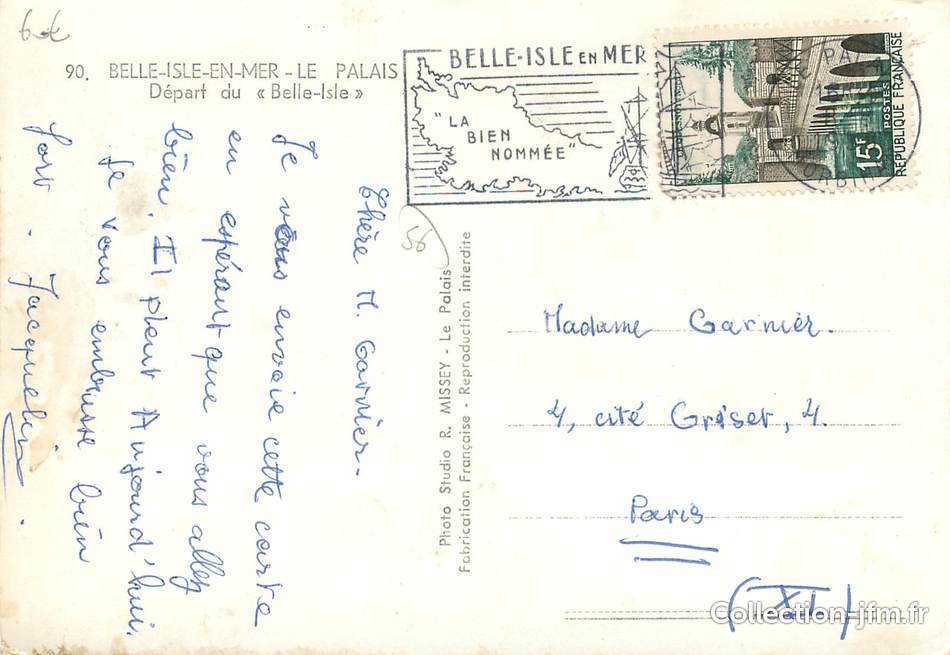 6€
90. BELLE-ISLE-EN-MER - LE PALAIS
Départ du « Belle-Isle »
BELLE-ISLE EN MER
"LA
BIEN
NOMMÉE"
PAL
MORBIHAN
POSTES
15F
REPUBLIQUE FRANÇAISE
56
Chère M. Garnier.
Je vous envoie cette carte
en espérant que vous allez
bien. Il pleut Aujourd'hui.
Je vous embrasse bien
fort. Jacqueline.
Photo Studio R. MISSEY - Le Palais
Fabrication Française - Reproduction interdite
Madame Garnier.
4, cité Griset, 4.
Paris
(XI)
Collection-jfm.fr